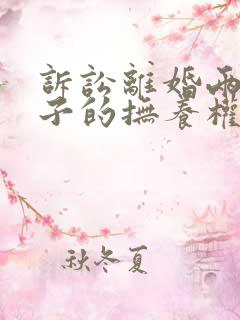 訴訟離婚兩
子的撫養權
秋冬夏